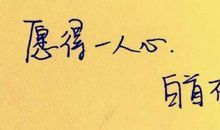 愿得一人心.
白首不